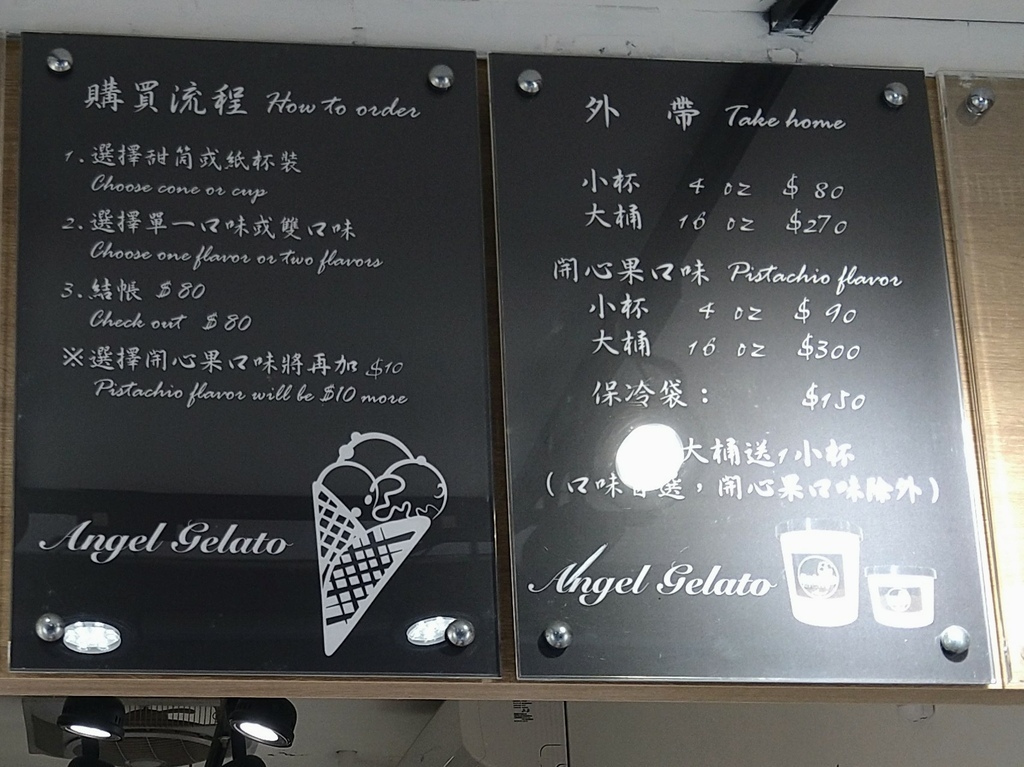 購買流程 How to order
1.選擇甜筒或紙杯裝
Choose cone or cup
2.選擇單一口味或雙口味
Choose one flavor or two flavors
3.結帳 $80
Check out $80
※選擇開心果口味將再加 $10
Pistachio flavor will be $10 more
Angel Gelato
外 帶 Take home
小杯 4 oz $80
大桶 16 oz $270
開心果口味 Pistachio flavor
小杯 4 oz $90
大桶 16 oz $300
保冷袋: $150
大桶送1小杯
(口味 選,開心果口味除外)
Angel Gelato